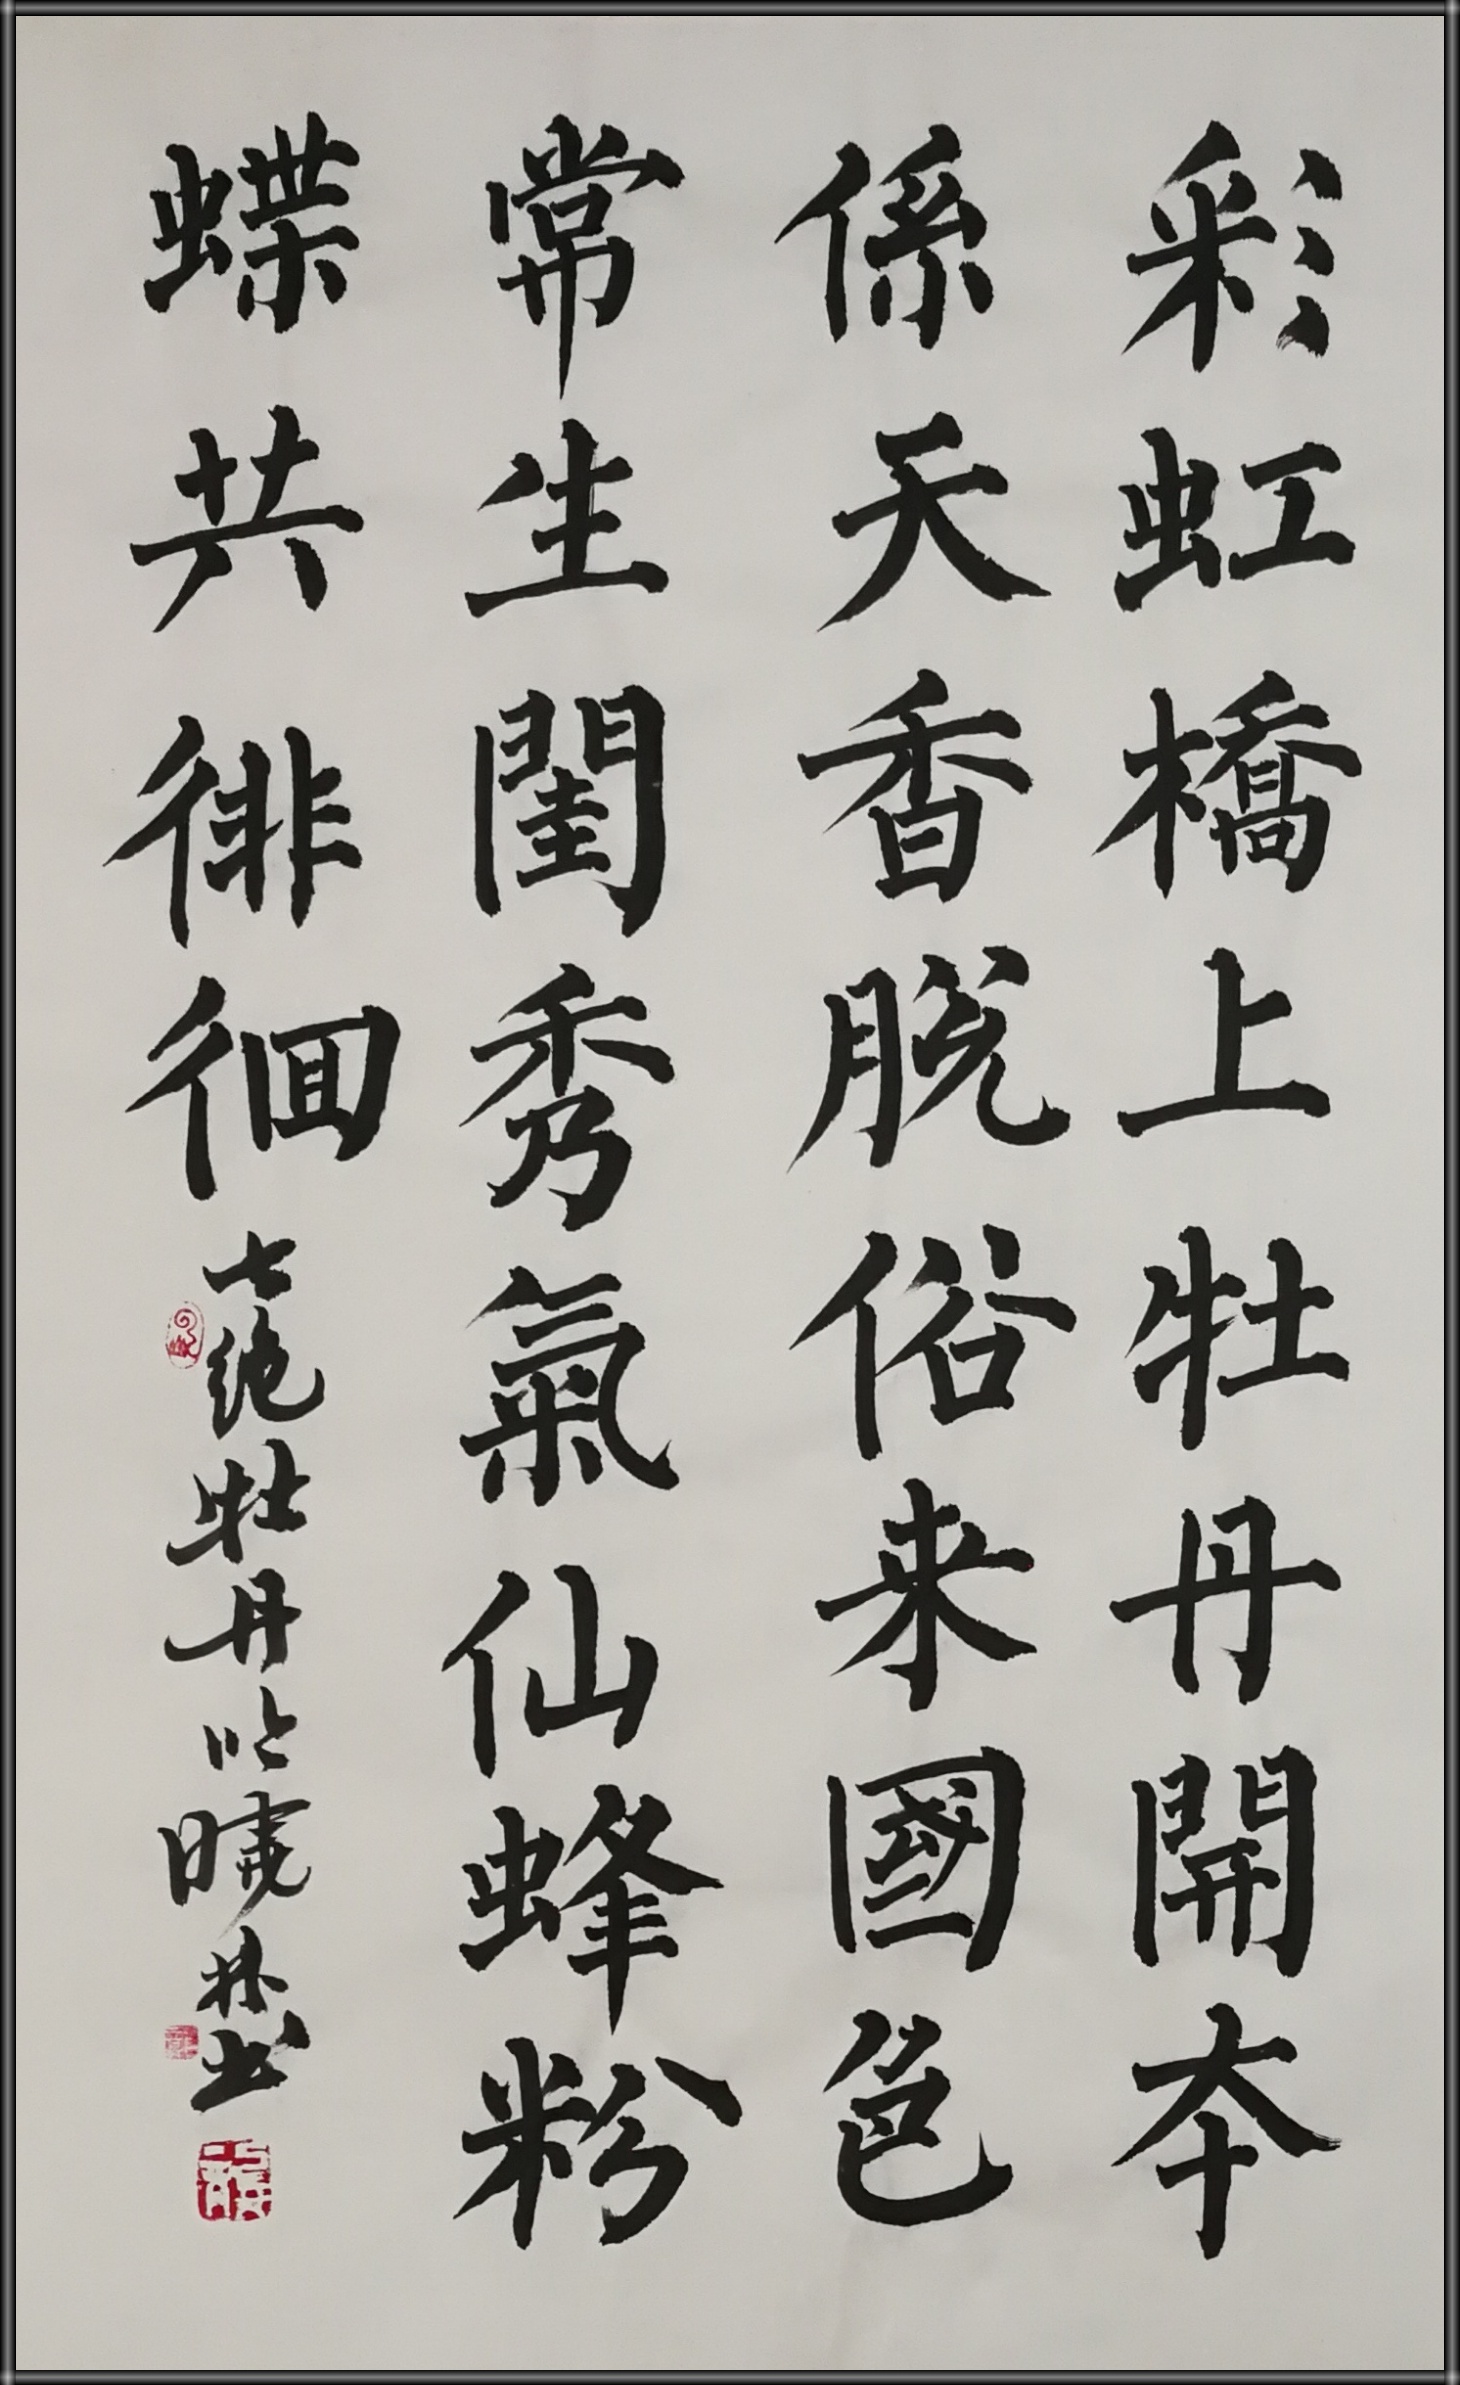 彩虹橋上牡丹開本
係天香脫俗来國色
常生閨秀氣仙蜂粉
蝶共徘徊
七绝牡丹吟曉林书